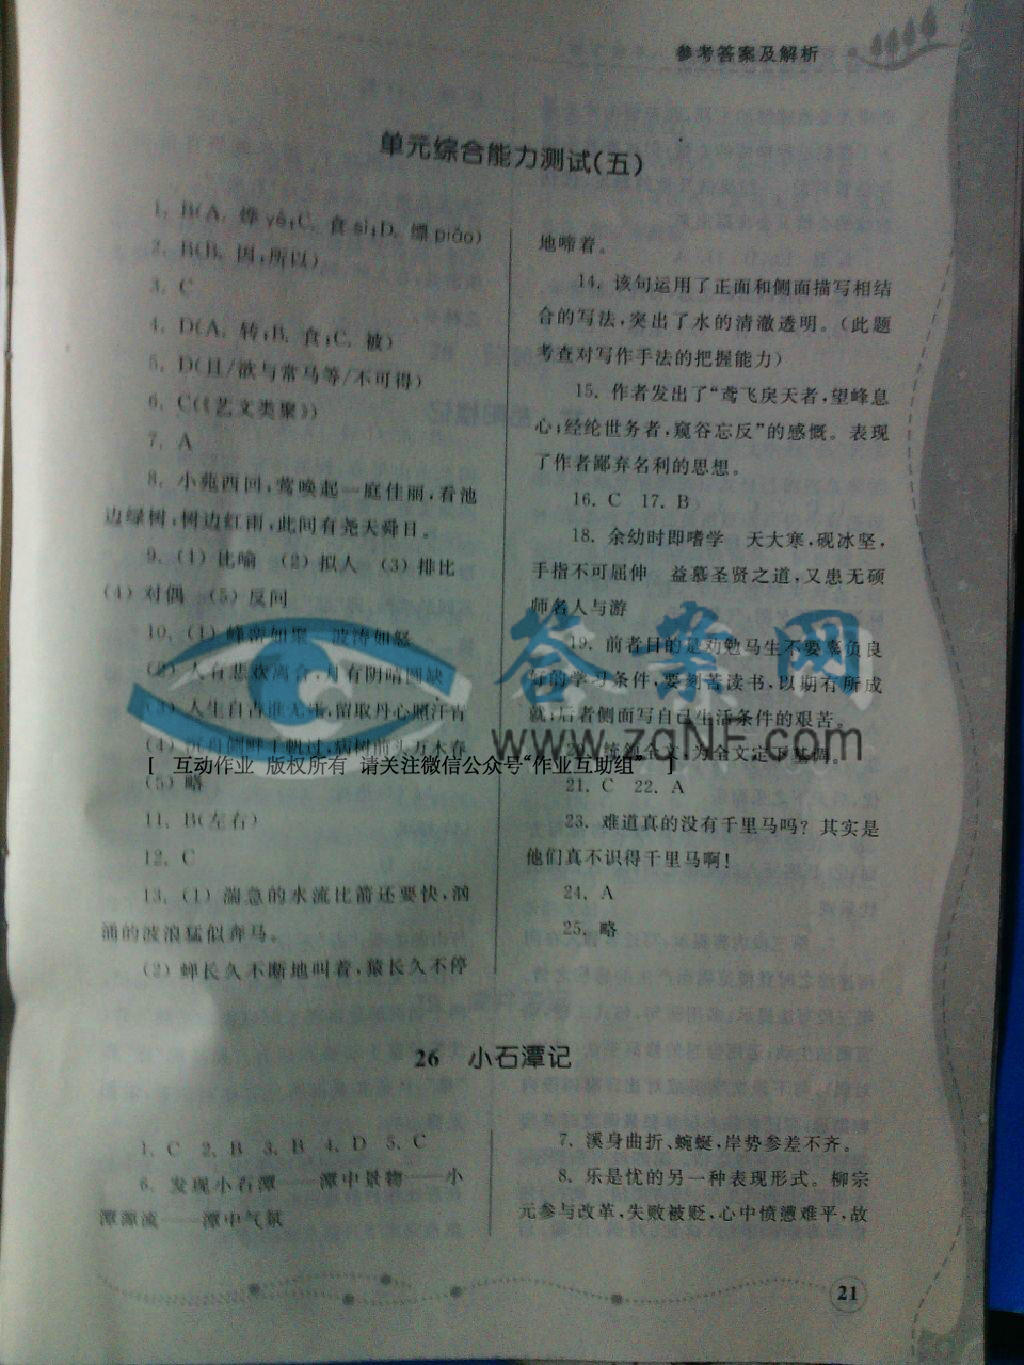 参考答案及解析
单元综合能力测试(五)
1. B(A. 烨 yè;C. 食 sì;D. 缥 piāo)
2. B(B. 因;所以)
3. C
4. D(A. 转;B. 食;C. 被)
5. D(且/欲与常马等/不可得)
6. C(《艺文类聚》)
7. A
8. 小苑西回,莺唤起一庭佳丽,看池
边绿树,树边红雨,此间有尧天舜日。
9. (1) 比喻 (2) 拟人 (3) 排比
(4) 对偶 (5) 反问
10. (1) 峰峦如聚 波涛如怒
(2) 人有悲欢离合,月有阴晴圆缺
(3) 人生自古谁无死,留取丹心照汗青
(4) 沉舟侧畔千帆过,病树前头万木春
(5) 略
11. B(左右)
12. C
13. (1) 湍急的水流比箭还要快,汹
涌的波浪猛似奔马。
(2) 蝉长久不断地叫着,猿长久不停
地啼着。
14. 该句运用了正面和侧面描写相结
合的写法,突出了水的清澈透明。(此题
考查对写作手法的把握能力)
15. 作者发出了“鸢飞戾天者,望峰息
心;经纶世务者,窥谷忘反”的感慨。表现
了作者鄙弃名利的思想。
16. C 17. B
18. 余幼时即嗜学 天大寒,砚冰坚,
手指不可屈伸 益慕圣贤之道,又患无硕
师名人与游
19. 前者目的是劝勉马生不要辜负良
好的学习条件,要刻苦读书,以期有所成
就;后者侧面写自己生活条件的艰苦。
20. 统领全文,为全文定下基调。
21. C 22. A
23. 难道真的没有千里马吗? 其实是
他们真不识得千里马啊!
24. A
25. 略
答案网
www.zqNF.com
[ 互动作业 版权所有 请关注微信公众号“作业互助组” ]
26 小石潭记
1. C 2. B 3. B 4. D 5. C
6. 发现小石潭——潭中景物——小
潭源流——潭中气氛
7. 溪身曲折、蜿蜒,岸势参差不齐。
8. 乐是忧的另一种表现形式。柳宗
元参与改革,失败被贬,心中愤懑难平,故
21